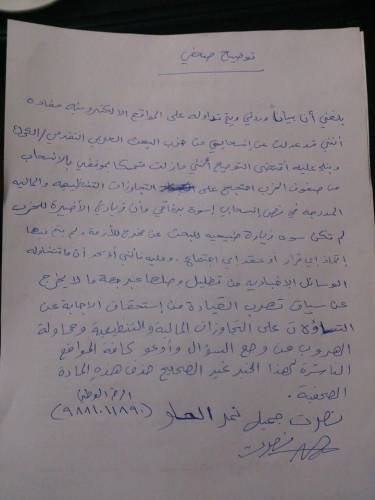 توضيح صحفي
بلغني أن بياناً ورقي ويتم تداوله على المواقع الالكترونية مفاده
أنني قد عدلت عن إنسحابي من حزب البعث العربي التقدمي /
وبناء عليه أقتضى التوضيح أنني مازلت متمسكاً بموقفي بالانسحاب
من صفوف الحزب احتجاج على التجاوزات التنظيمية والمالية
المدرجة في نص انسحابي إسوة برفاقي وأن زيارتي الأخيرة للحزب
لم تكن سوى زيارة طبيعية للبحث عن مخرج للأزمة ولم يتم فيها
إتخاذ اي قرار أو عقد اي اجتماع. وعليه فإنني أؤكد أن ما تتناوله
الوسائل الاخبارية من تظليل وصلها عبر جهة ما لا يخرج
عن سياق تهرب القيادة من إستحقاق الاجابة عن
التساؤلات على التجاوزات المالية والتنظيمية ومحاولة
الهروب من وضع السؤال وأدعو كافة المواقع
الناشرة لهذا الخبر غير الصحيح حذف هذه المادة
الصحفية.
الرقم الوطني
نصرت جميل نمر العسلو (٩٨٨١٠١١٨٩٠)
نصرت